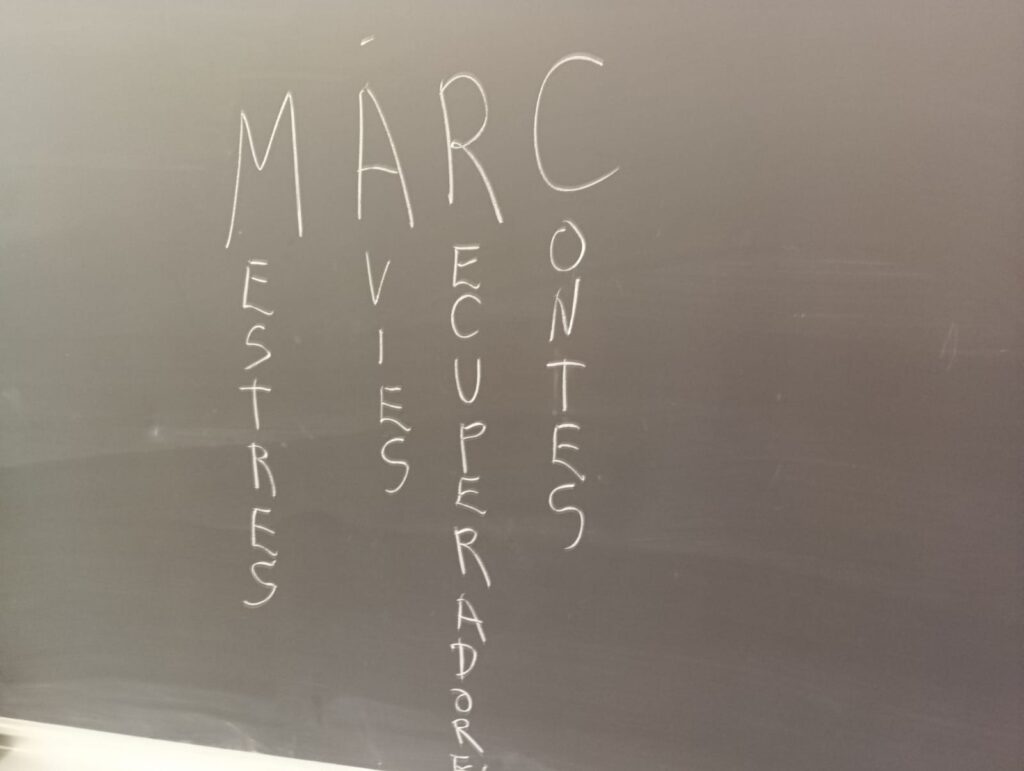 MESTRES
ÁVIES
RECUPERADORE
CONTES